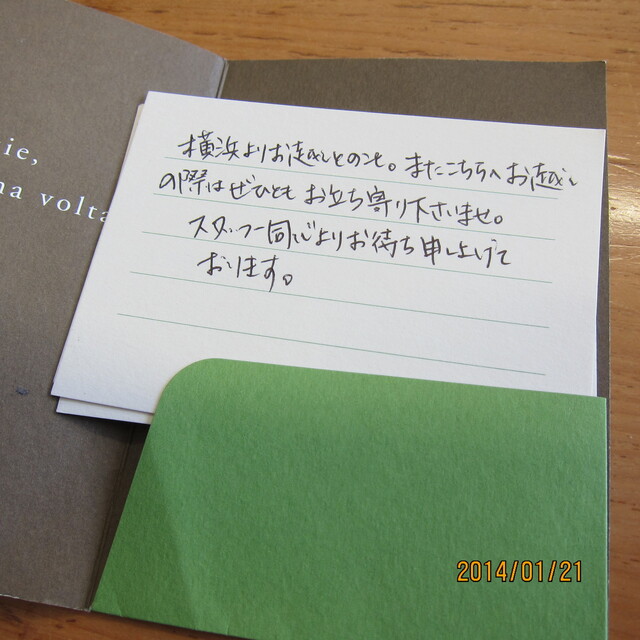 ie,
na volta
横浜よりお越しとのこと。またこちらへお越し
の際はぜひともお立ち寄り下さいませ。
スタッフ一同心よりお待ち申し上げて
おります。
2014/01/21